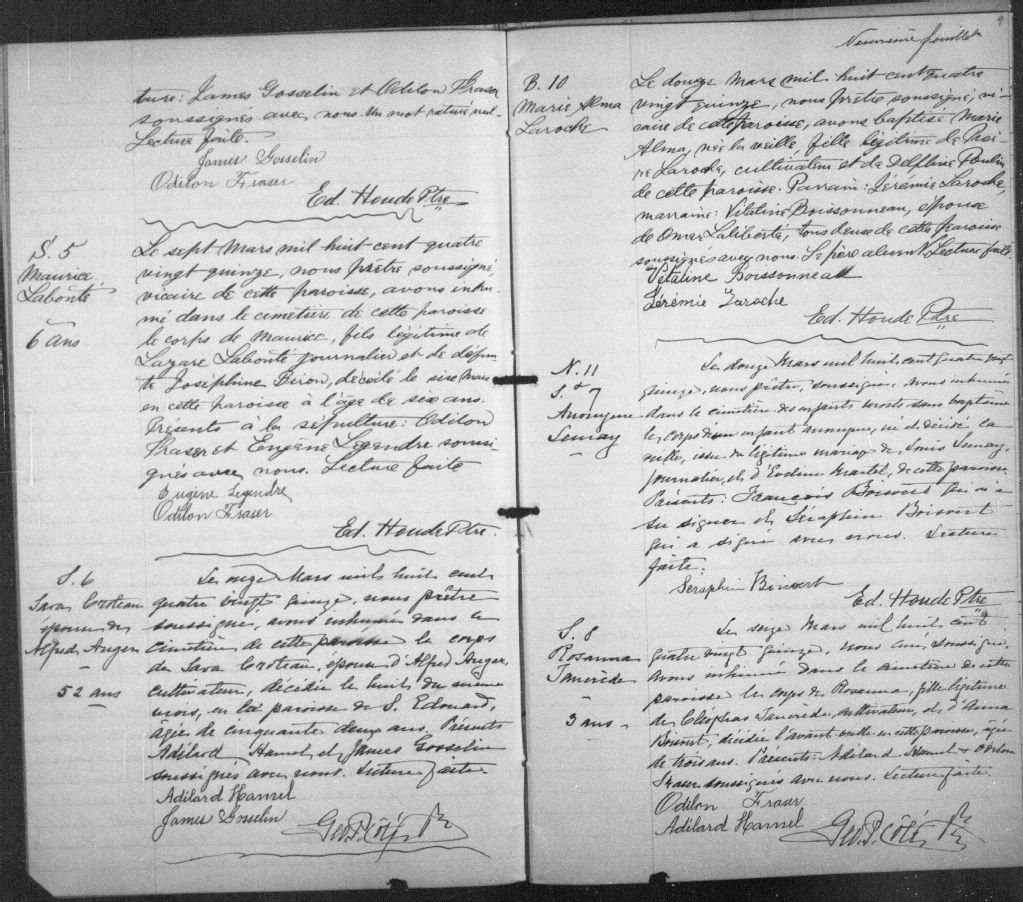 ture: James Gosselin et Odilon Fraser
soussignés avec nous. Un mot raturé nul.
Lecture faite.
James Gosselin
Odilon Fraser
Ed. Houde Ptre
S. 5
Maurice
Labonté
6 ans
Le sept Mars mil huit cent quatre
vingt quinze, nous prêtre soussigné
vicaire de cette paroisse, avons inhu-
mé dans le cimetière de cette paroisse
le corps de Maurice, fils légitime de
Lazare Labonté journalier et de défun-
te Joséphine Biron, décédé le six Mars
en cette paroisse à l'âge de six ans.
Présents à la sépulture: Odilon
Fraser et Eugène Legendre soussi-
gnés avec nous. Lecture faite
Eugène Legendre
Odilon Fraser
Ed. Houde Ptre.
S. 6
Sara Croteau
épouse de
Alfred Auger
52 ans
Le onze Mars mil huit cent
quatre vingt quinze, nous prêtre
soussigné, avons inhumé dans le
cimetière de cette paroisse le corps
de Sara Croteau, épouse d'Alfred Auger,
cultivateur, décédée le huit du même
mois, en la paroisse de S. Edouard,
âgée de cinquante deux ans. Présents
Adélard Hamel et James Gosselin
soussignés avec nous. Lecture faite.
Adélard Hamel
James Gosselin
Geo. P. Côté Ptr
9
Neuvième feuillet
B. 10
Marie Alma
Laroche
Le douze Mars mil huit cent quatre
vingt quinze, nous prêtre soussigné, vi-
caire de cette paroisse, avons baptisé Marie
Alma, née la veille, fille légitime de
Laroche, cultivateur et de Delphine Poulin
de cette paroisse. Parrain: Jérémie Laroche,
marraine: Vitaline Boissonneau, épouse
de Omer Laliberté, tous deux de cette paroisse
soussignés avec nous. Le père absent. Lecture faite.
Vitaline Boissonneau
Jérémie Laroche
Ed. Houde Ptre
N. 11
S. 7
Anonyme
Lemay
Le douze Mars mil huit cent quatre vingt
quinze, nous prêtre, soussigné, avons inhumé
dans le cimetière des enfants morts sans baptême
le corps d'un enfant anonyme, né et décédé la
veille, issu du légitime mariage de Louis Lemay,
journalier, et d'Evelina Martel, de cette paroisse.
Présents: François Boisvert qui n'a
su signer et Séraphin Boisvert
qui a signé avec nous. Lecture
faite.
Seraphin Boisvert
Ed. Houde Ptre
S. 8
Rosanna
Tancrède
3 ans
Le seize Mars mil huit cent
quatre vingt quinze, nous curé, soussigné,
avons inhumé dans le cimetière de cette
paroisse le corps de Rosanna, fille légitime
de Cléophas Tancrède, cultivateur, et d'Anna
Boisvert, décédée l'avant veille en cette paroisse, âgée
de trois ans. Présents: Adélard Hamel & Odilon
Fraser soussignés avec nous. Lecture faite.
Odilon Fraser
Adélard Hamel
Geo. P. Côté Ptr